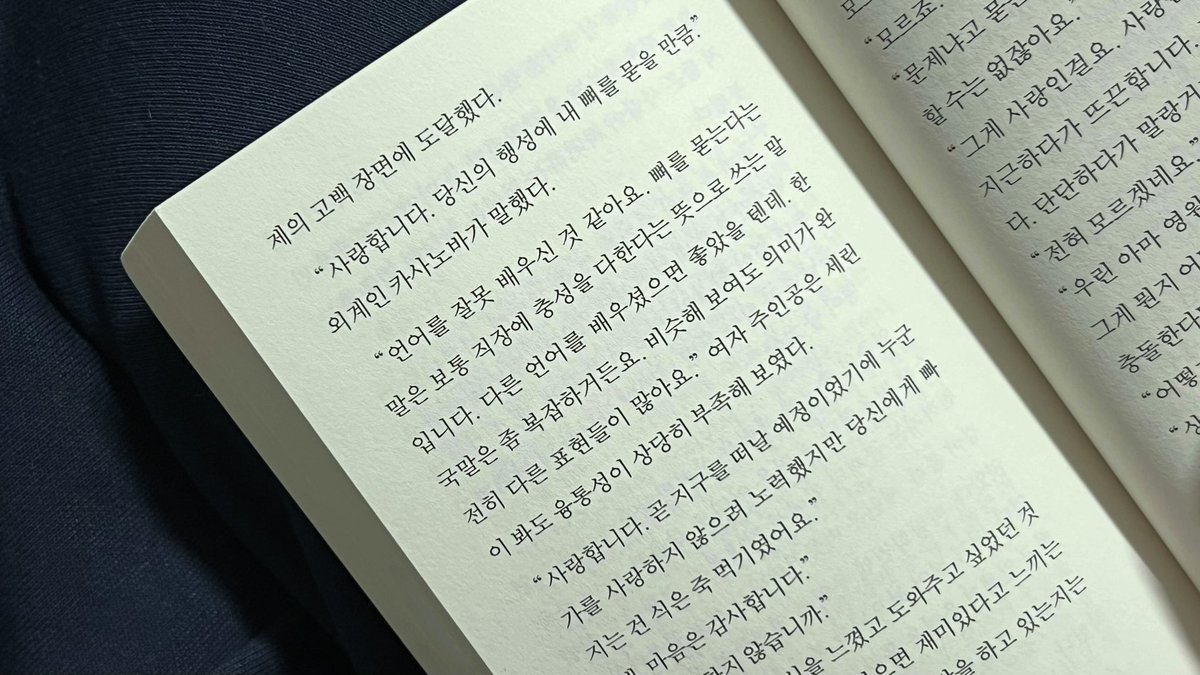 제의 고백 장면에 도달했다.
“사랑합니다. 당신의 행성에 내 뼈를 묻을 만큼.”
외계인 카사노바가 말했다.
“언어를 잘못 배우신 것 같아요. 뼈를 묻는다는
말은 보통 직장에 충성을 다한다는 뜻으로 쓰는 말
입니다. 다른 언어를 배우셨으면 좋았을 텐데. 한
국말은 좀 복잡하거든요. 비슷해 보여도 의미가 완
전히 다른 표현들이 많아요.” 여자 주인공은 세린
이 봐도 융통성이 상당히 부족해 보였다.
“사랑합니다. 곧 지구를 떠날 예정이었기에 누군
가를 사랑하지 않으려 노력했지만 당신에게 빠
지는 건 식은 죽 먹기였어요.”
마음은 감사합니다.”
않습니까.”
느꼈고 도와주고 싶었던 것
재미있다고 느끼는
하고 있는지는
“모르죠.
“문제냐고 묻는
할 수는 없잖아요.
“그게 사랑인걸요. 사랑
지근하다가 뜨끈합니다.
다. 단단하다가 말랑
“전혀 모르겠네요.”
“우린 아마
그게 뭔지
충돌한다
“어떻